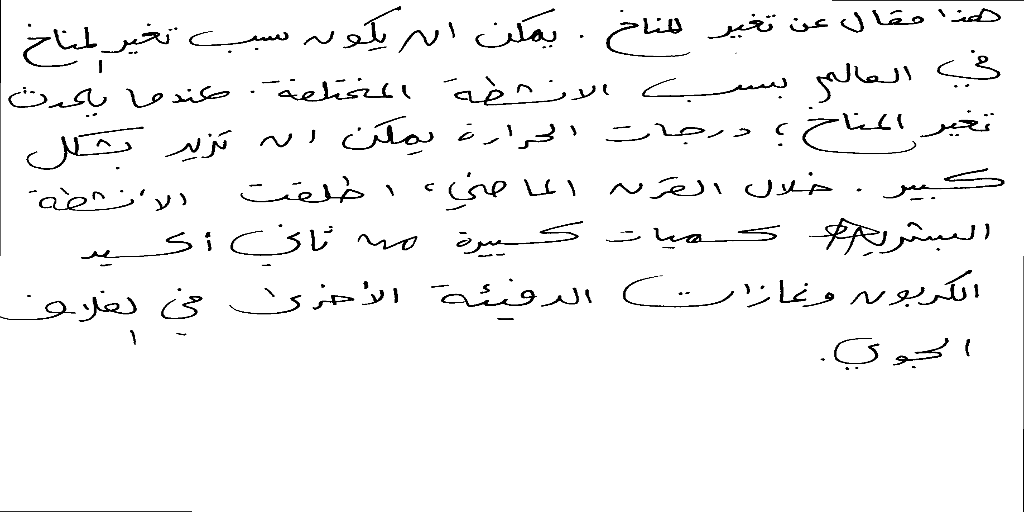 هذا مقال عن تغير المناخ . يمكن ان يكون سبب تغير المناخ
في العالم بسبب الانشطة المختلفة . عندما يحدث
تغير المناخ ؛ درجات الحرارة يمكن ان تزيد بشكل
كبير . خلال القرن الماضي ، اطلقت الأنشطة
البشرية كميات كبيرة من ثاني أكسيد
الكربون وغازات الدفيئة الأخرى في الغلاف
الجوي .